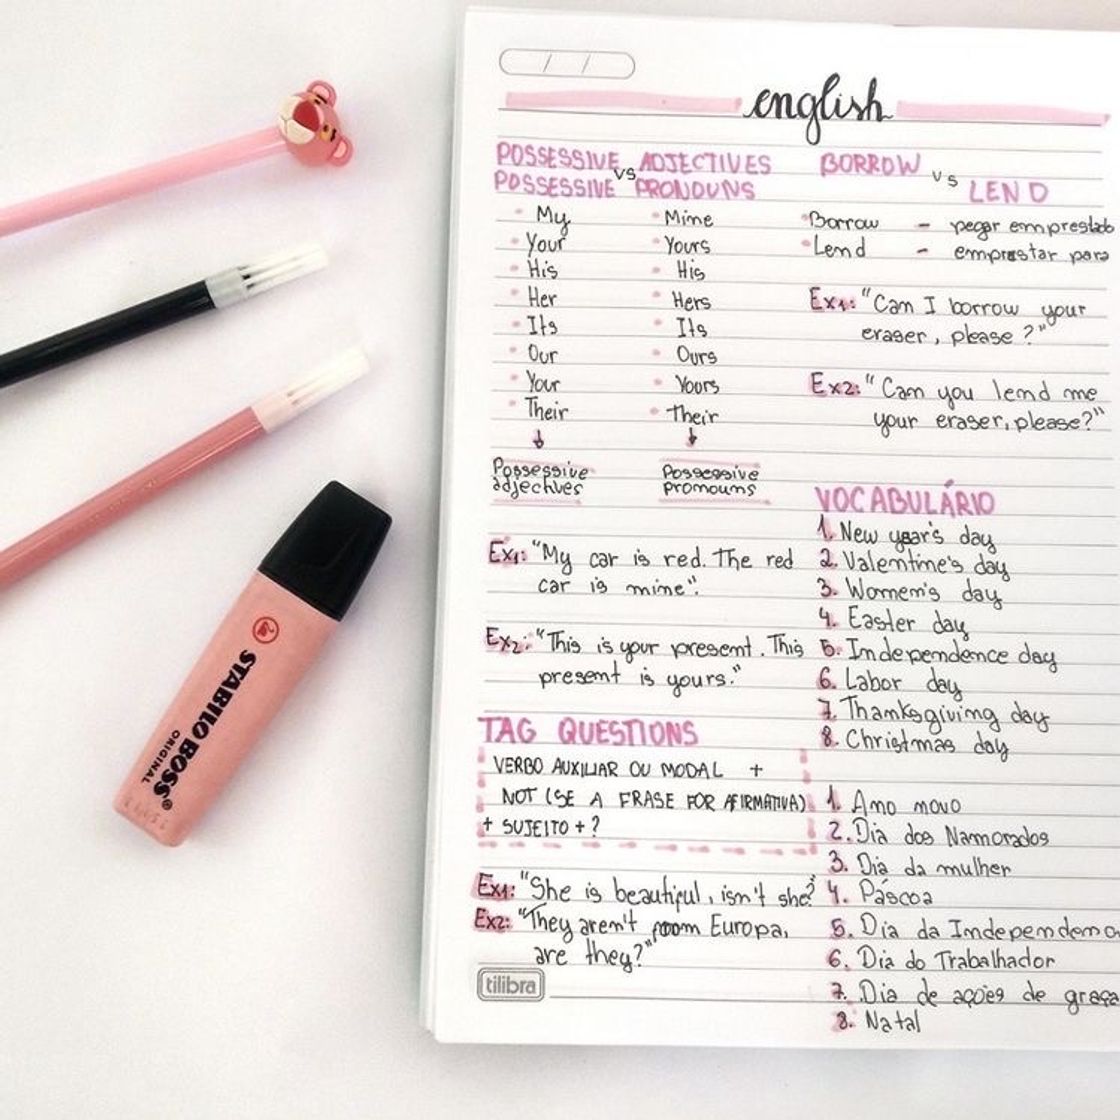 english
POSSESSIVE ADJECTIVES
vs
POSSESSIVE PRONOUNS
My Mine
Your Yours
His His
Her Hers
Its Its
Our Ours
Your Yours
Their Their
Possessive adjectives
Possessive pronouns
Ex1: "My car is red. The red
car is mine".
Ex2: "This is your present. This
present is yours."
TAG QUESTIONS
VERBO AUXILIAR OU MODAL +
NOT (SE A FRASE FOR AFIRMATIVA)
+ SUJEITO + ?
Ex1: "She is beautiful, isn't she?"
Ex2: "They aren't from Europa,
are they?"
tilibra
BORROW vs LEND
Borrow - pegar emprestado
Lend - emprestar para
Ex1: "Can I borrow your
eraser, please?"
Ex2: "Can you lend me
your eraser, please?"
VOCABULÁRIO
1. New year's day
2. Valentine's day
3. Women's day
4. Easter day
5. Independence day
6. Labor day
7. Thanksgiving day
8. Christmas day
1. Ano novo
2. Dia dos Namorados
3. Dia da mulher
4. Páscoa
5. Dia da Independenc
6. Dia do Trabalhador
7. Dia de ações de graça
8. Natal
STABILO BOSS®
ORIGINAL